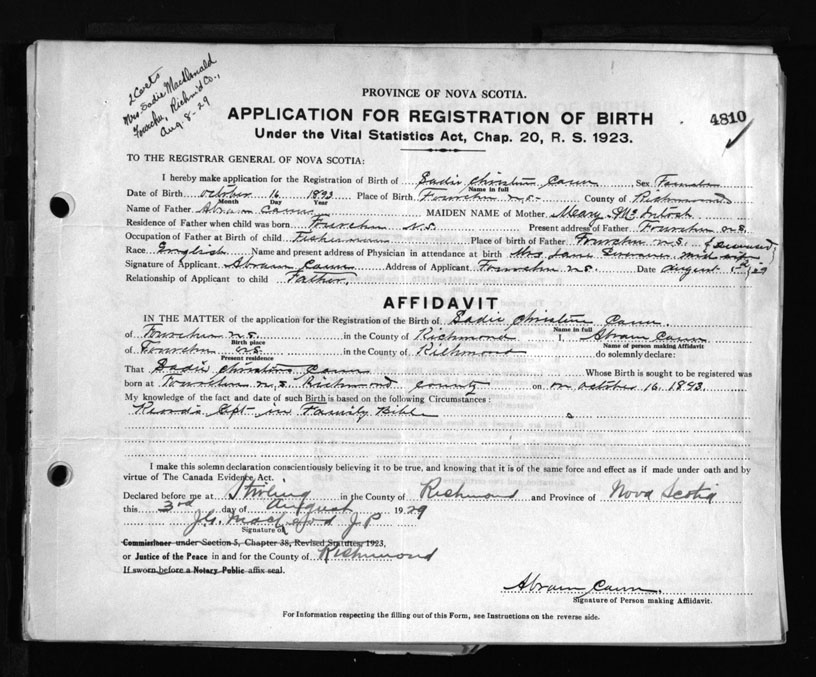 2 Certs
Mrs. Sadie MacDonald
Fourchu, Richm'd Co.,
Aug. 8-29
PROVINCE OF NOVA SCOTIA.
APPLICATION FOR REGISTRATION OF BIRTH
4810
Under the Vital Statistics Act, Chap. 20, R. S. 1923.
TO THE REGISTRAR GENERAL OF NOVA SCOTIA:
I hereby make application for the Registration of Birth of Sadie Christin Cann Sex
Name in full
Date of Birth October 16 1893 Place of Birth Fourchu N.S. County of Richmond
Month Day Year
Name of Father Abram Cann MAIDEN NAME of Mother Meary McIntosh
Residence of Father when child was born Fourchu N.S. Present address of Father Fourchu N.S.
Occupation of Father at Birth of child Fisherman Place of birth of Father Fourchu N.S. (Deceased)
Race English Name and present address of Physician in attendance at birth Mrs Jane mid wife
Signature of Applicant Abram Cann Address of Applicant Fourchu N.S. Date August 29
Relationship of Applicant to child Father.
AFFIDAVIT
IN THE MATTER of the application for the Registration of the Birth of Sadie Christin Cann.
Name in full
of Fourchu N.S. in the County of Richmond I, Abram Cann
Birth place Name of person making Affidavit
of Fourchu N.S. in the County of Richmond do solemnly declare:
Present residence
That Sadie Christins Cann Whose Birth is sought to be registered was
born at Fourchu N.S. Richmond County on on October 16. 1893.
My knowledge of the fact and date of such Birth is based on the following Circumstances:
Records Kept in Family Bible
I make this solemn declaration conscientiously believing it to be true, and knowing that it is of the same force and effect as if made under oath and by
virtue of The Canada Evidence Act.
Declared before me at Stirling in the County of Richmond and Province of Nova Scotia
this 3rd day of August 1929
J.G. MacLeod J.P
Signature of
Commissioner under Section 5, Chapter 38, Revised Statutes, 1923,
or Justice of the Peace in and for the County of Richmond
If sworn before a Notary Public affix seal.
Abram Cann.
Signature of Person making Affidavit.
For Information respecting the filling out of this Form, see Instructions on the reverse side.